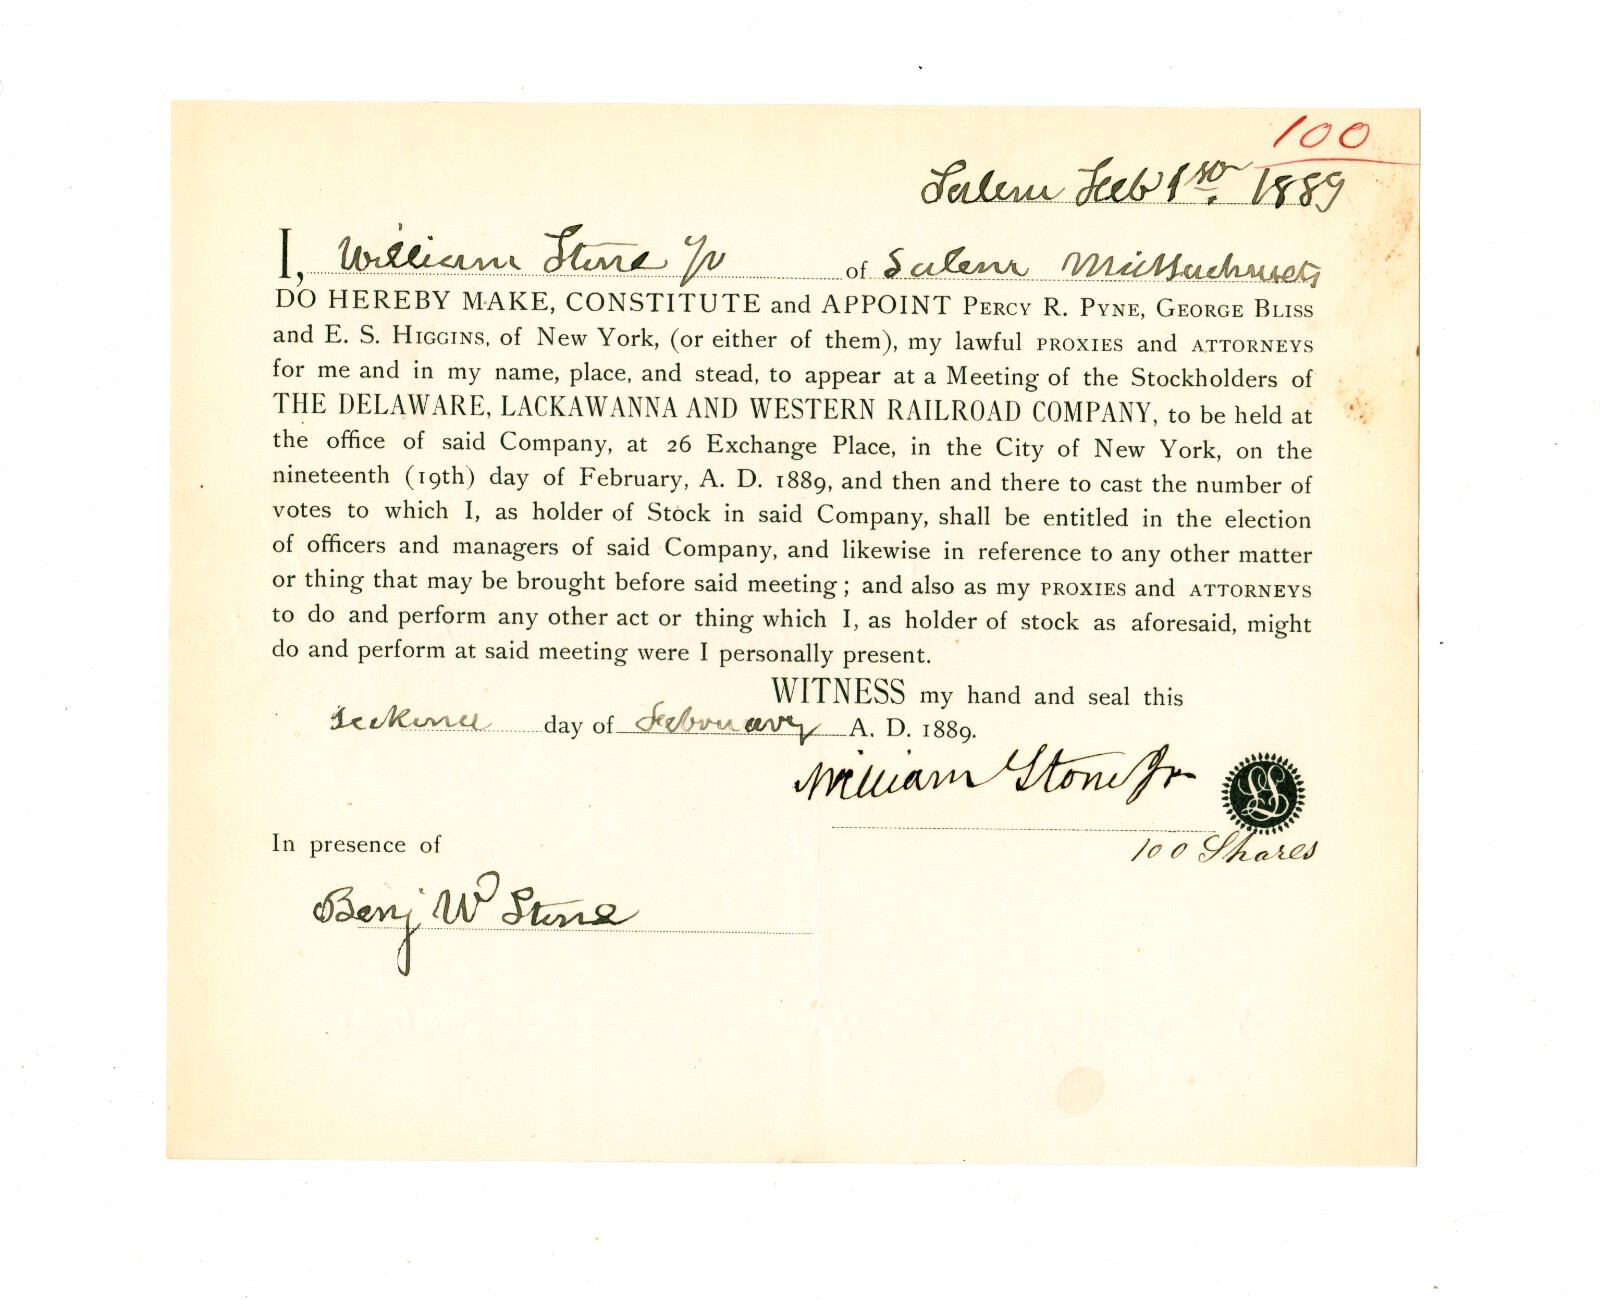 100
Salem Feb 1st. 1889
I, William Stone Jr of Salem Massachusetts
DO HEREBY MAKE, CONSTITUTE and APPOINT PERCY R. PYNE, GEORGE BLISS
and E. S. HIGGINS, of New York, (or either of them), my lawful PROXIES and ATTORNEYS
for me and in my name, place, and stead, to appear at a Meeting of the Stockholders of
THE DELAWARE, LACKAWANNA AND WESTERN RAILROAD COMPANY, to be held at
the office of said Company, at 26 Exchange Place, in the City of New York, on the
nineteenth (19th) day of February, A. D. 1889, and then and there to cast the number of
votes to which I, as holder of Stock in said Company, shall be entitled in the election
of officers and managers of said Company, and likewise in reference to any other matter
or thing that may be brought before said meeting; and also as my PROXIES and ATTORNEYS
to do and perform any other act or thing which I, as holder of stock as aforesaid, might
do and perform at said meeting were I personally present.
WITNESS my hand and seal this
day of February A. D. 1889.
William Stone Jr
LS
100 Shares
In presence of
Benj W Stone